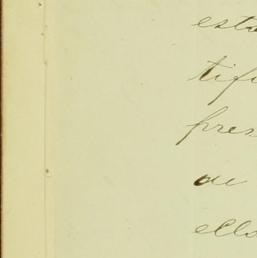 esta
tifi
pres
de
ells